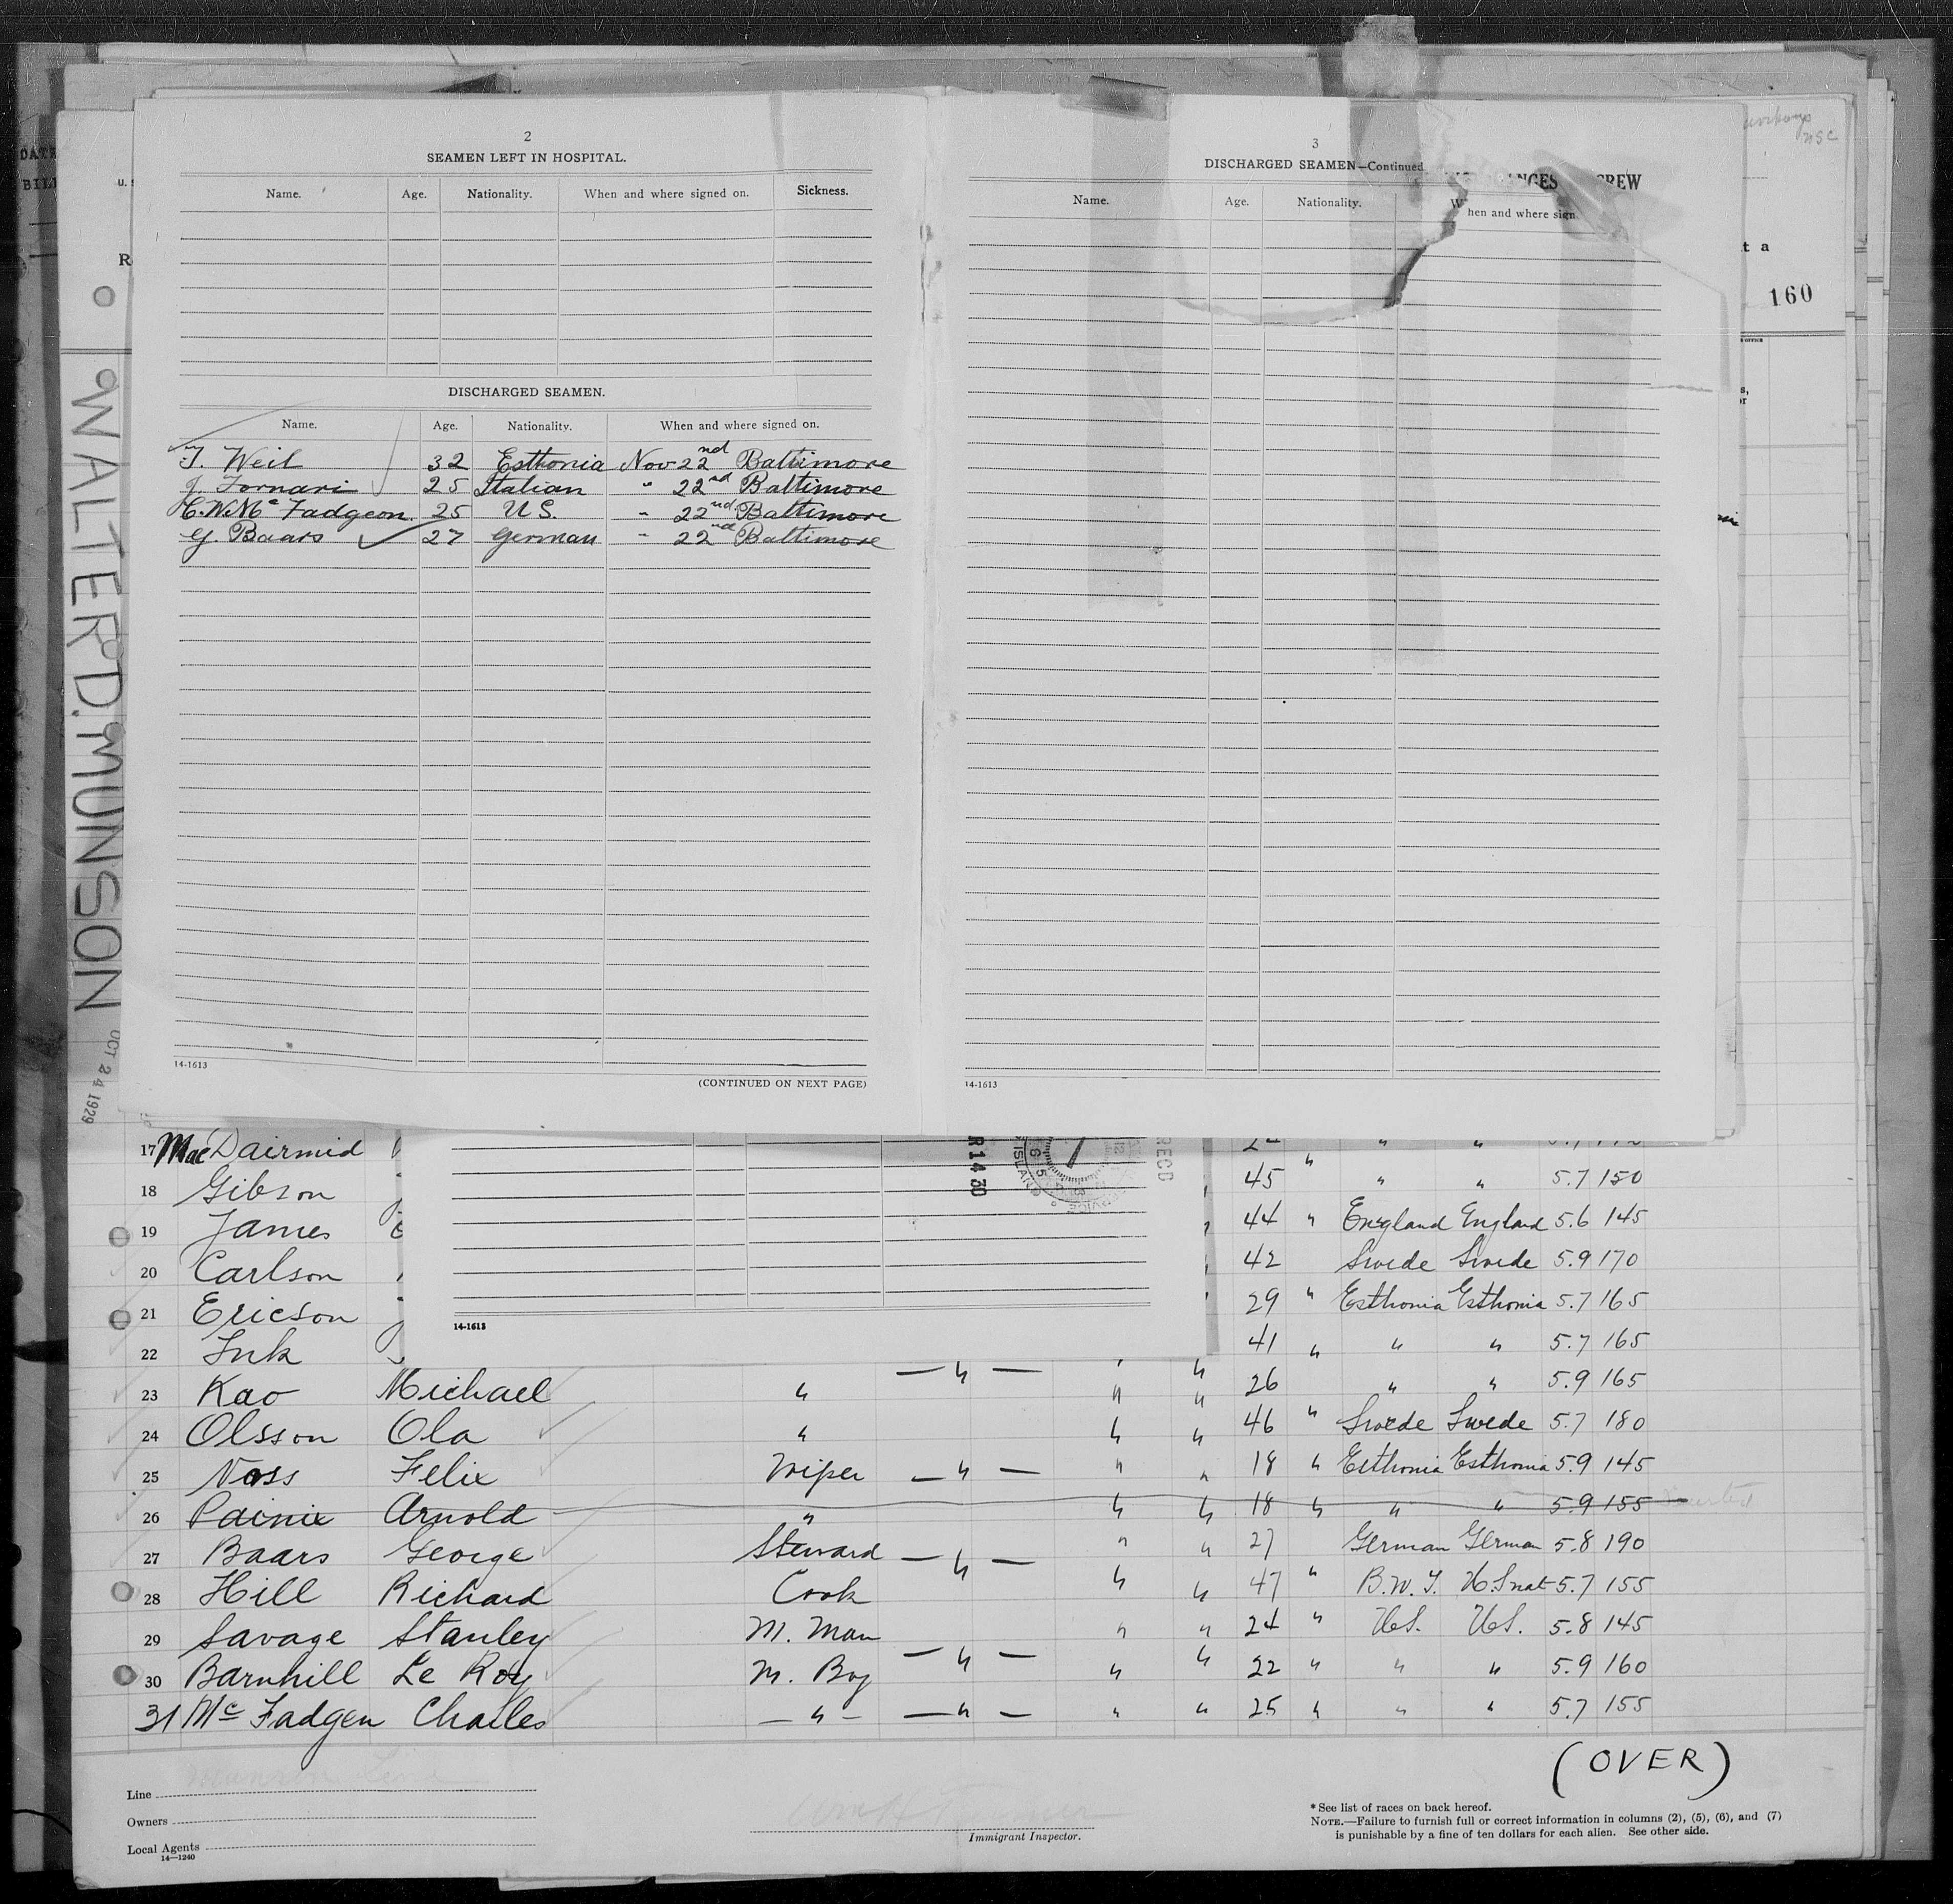 2
SEAMEN LEFT IN HOSPITAL.
Name. Age. Nationality. When and where signed on. Sickness.
DISCHARGED SEAMEN.
Name. Age. Nationality. When and where signed on.
J. Weil 32 Esthonia Nov 22nd Baltimore
J. Fornari 25 Italian " 22nd Baltimore
C.W. Mc Fadgeon. 25 U.S. " 22nd Baltimore
G. Baars 27 German " 22nd Baltimore
14-1613
(CONTINUED ON NEXT PAGE)
3
DISCHARGED SEAMEN—Continued
NGES REW
Name. Age. Nationality. When and where sign
14-1613
DATE
BILL
U. S
R
WALTER D. MUNSON
OCT 24 1929
NSC
t a
160
17 Mac Dairmid " "
18 Gibson 45 " " 5.7 150
19 James 44 " England England 5.6 145
20 Carlson 42 Swede Swede 5.9 170
21 Ericson 29 " Esthonia Esthonia 5.7 165
22 Ink 41 " " " 5.7 165
R 14 30
RECD
14-1613
23 Kao Michael " — " — " " 26 " " 5.9 165
24 Olsson Ola " " " 46 " Swede Swede 5.7 180
25 Noss Felix Wiper — " — " " 18 " Esthonia Esthonia 5.9 145
26 Painix Arnold " " " 18 " " " 5.9 155
27 Baars George Steward — " — " " 27 German German 5.8 190
28 Hill Richard Cook " " 47 " B.W.I. U.S nat 5.7 155
29 Savage Stanley M. Man " " 24 " U.S. U.S. 5.8 145
30 Barnhill Le Roy M. Boy — " — " " 22 " " " 5.9 160
31 Mc Fadgen Charles — " — — " — " " 25 " " " 5.7 155
(OVER)
Line Munson Line
Owners
Local Agents
14—1240
Immigrant Inspector.
* See list of races on back hereof.
NOTE.—Failure to furnish full or correct information in columns (2), (5), (6), and (7)
is punishable by a fine of ten dollars for each alien. See other side.